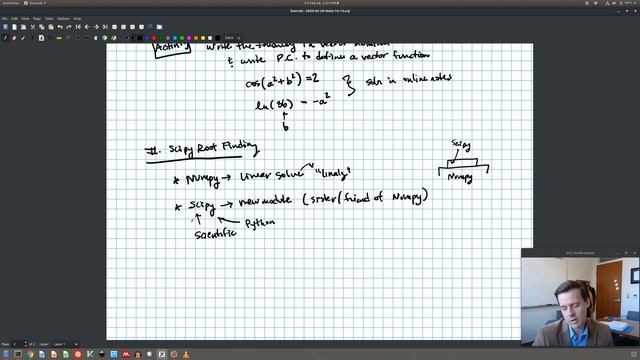 Activities
Fri Feb 28, 2:21 PM
Xournal - 2020-02-28-Note-14-13.xoj
File Edit View Journal Tools Options Help
Activity Write the following in vector notation
& write P.C. to define a vector function
cos(a²+b²)=2
soln in online notes
ln(3b) = -a²
b
II. Scipy Root Finding
* Numpy → linear solve "linalg"
* Scipy → new module (sister/friend of Numpy)
Scientific
Python
Scipy
Numpy
VLC media player
Page 2 of 2 Layer: Layer 1